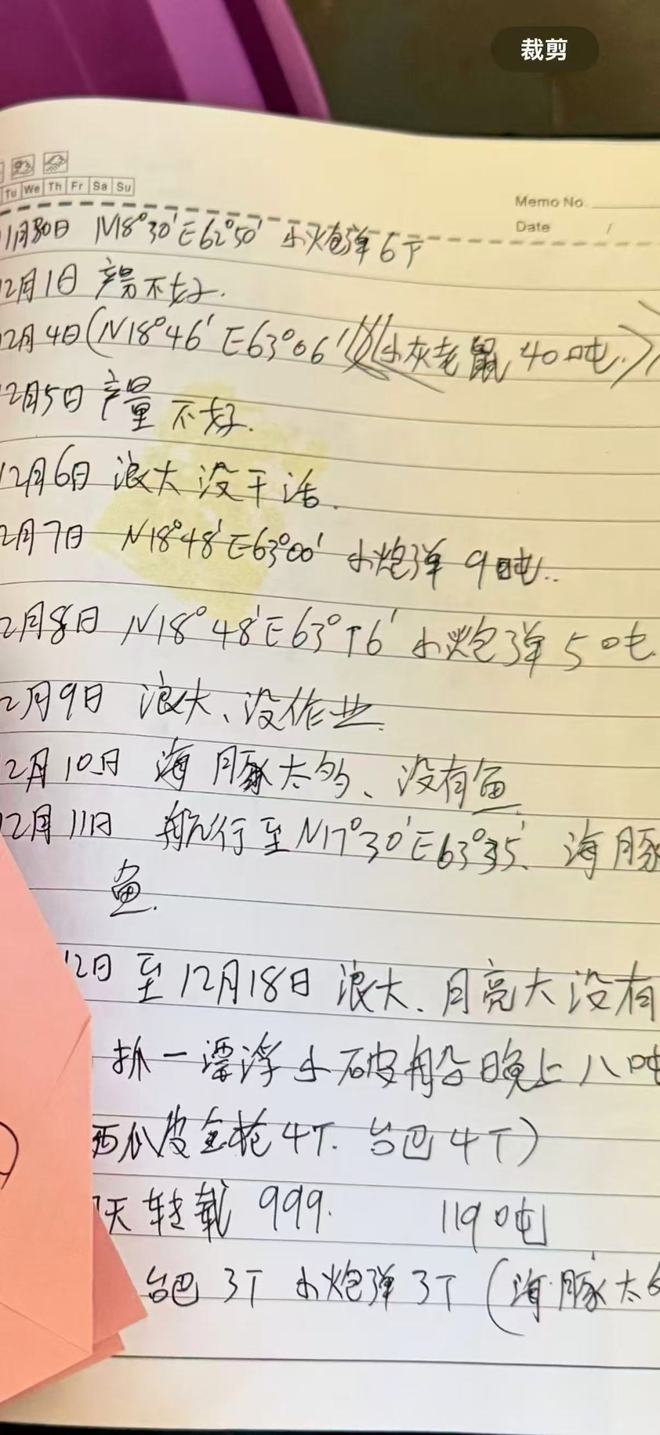 裁剪
Tu We Th Fr Sa Su
Memo No.
Date /
11月30日 N18°30′E62°50′ 小炮弹6T
12月1日 产量不好.
12月4日(N18°46′E63°06′ 小灰老鼠40吨.)
12月5日 产量不好.
12月6日 浪大没干活.
2月7日 N18°48′E63°00′ 小炮弹 9吨..
2月8日 N18°48′E63°16′小炮弹5吨.
2月9日 浪大、没作业.
2月10日 海豚太多、没有鱼
12月11日 航行至N17°30′E63°35′、海豚
鱼.
12日至12月18日浪大、月亮大没有
抓一漂浮小破船晚上八吨
西瓜皮金枪4T. 台巴4T)
天转载 999. 119吨
台巴 3T 小炮弹3T (海豚太多